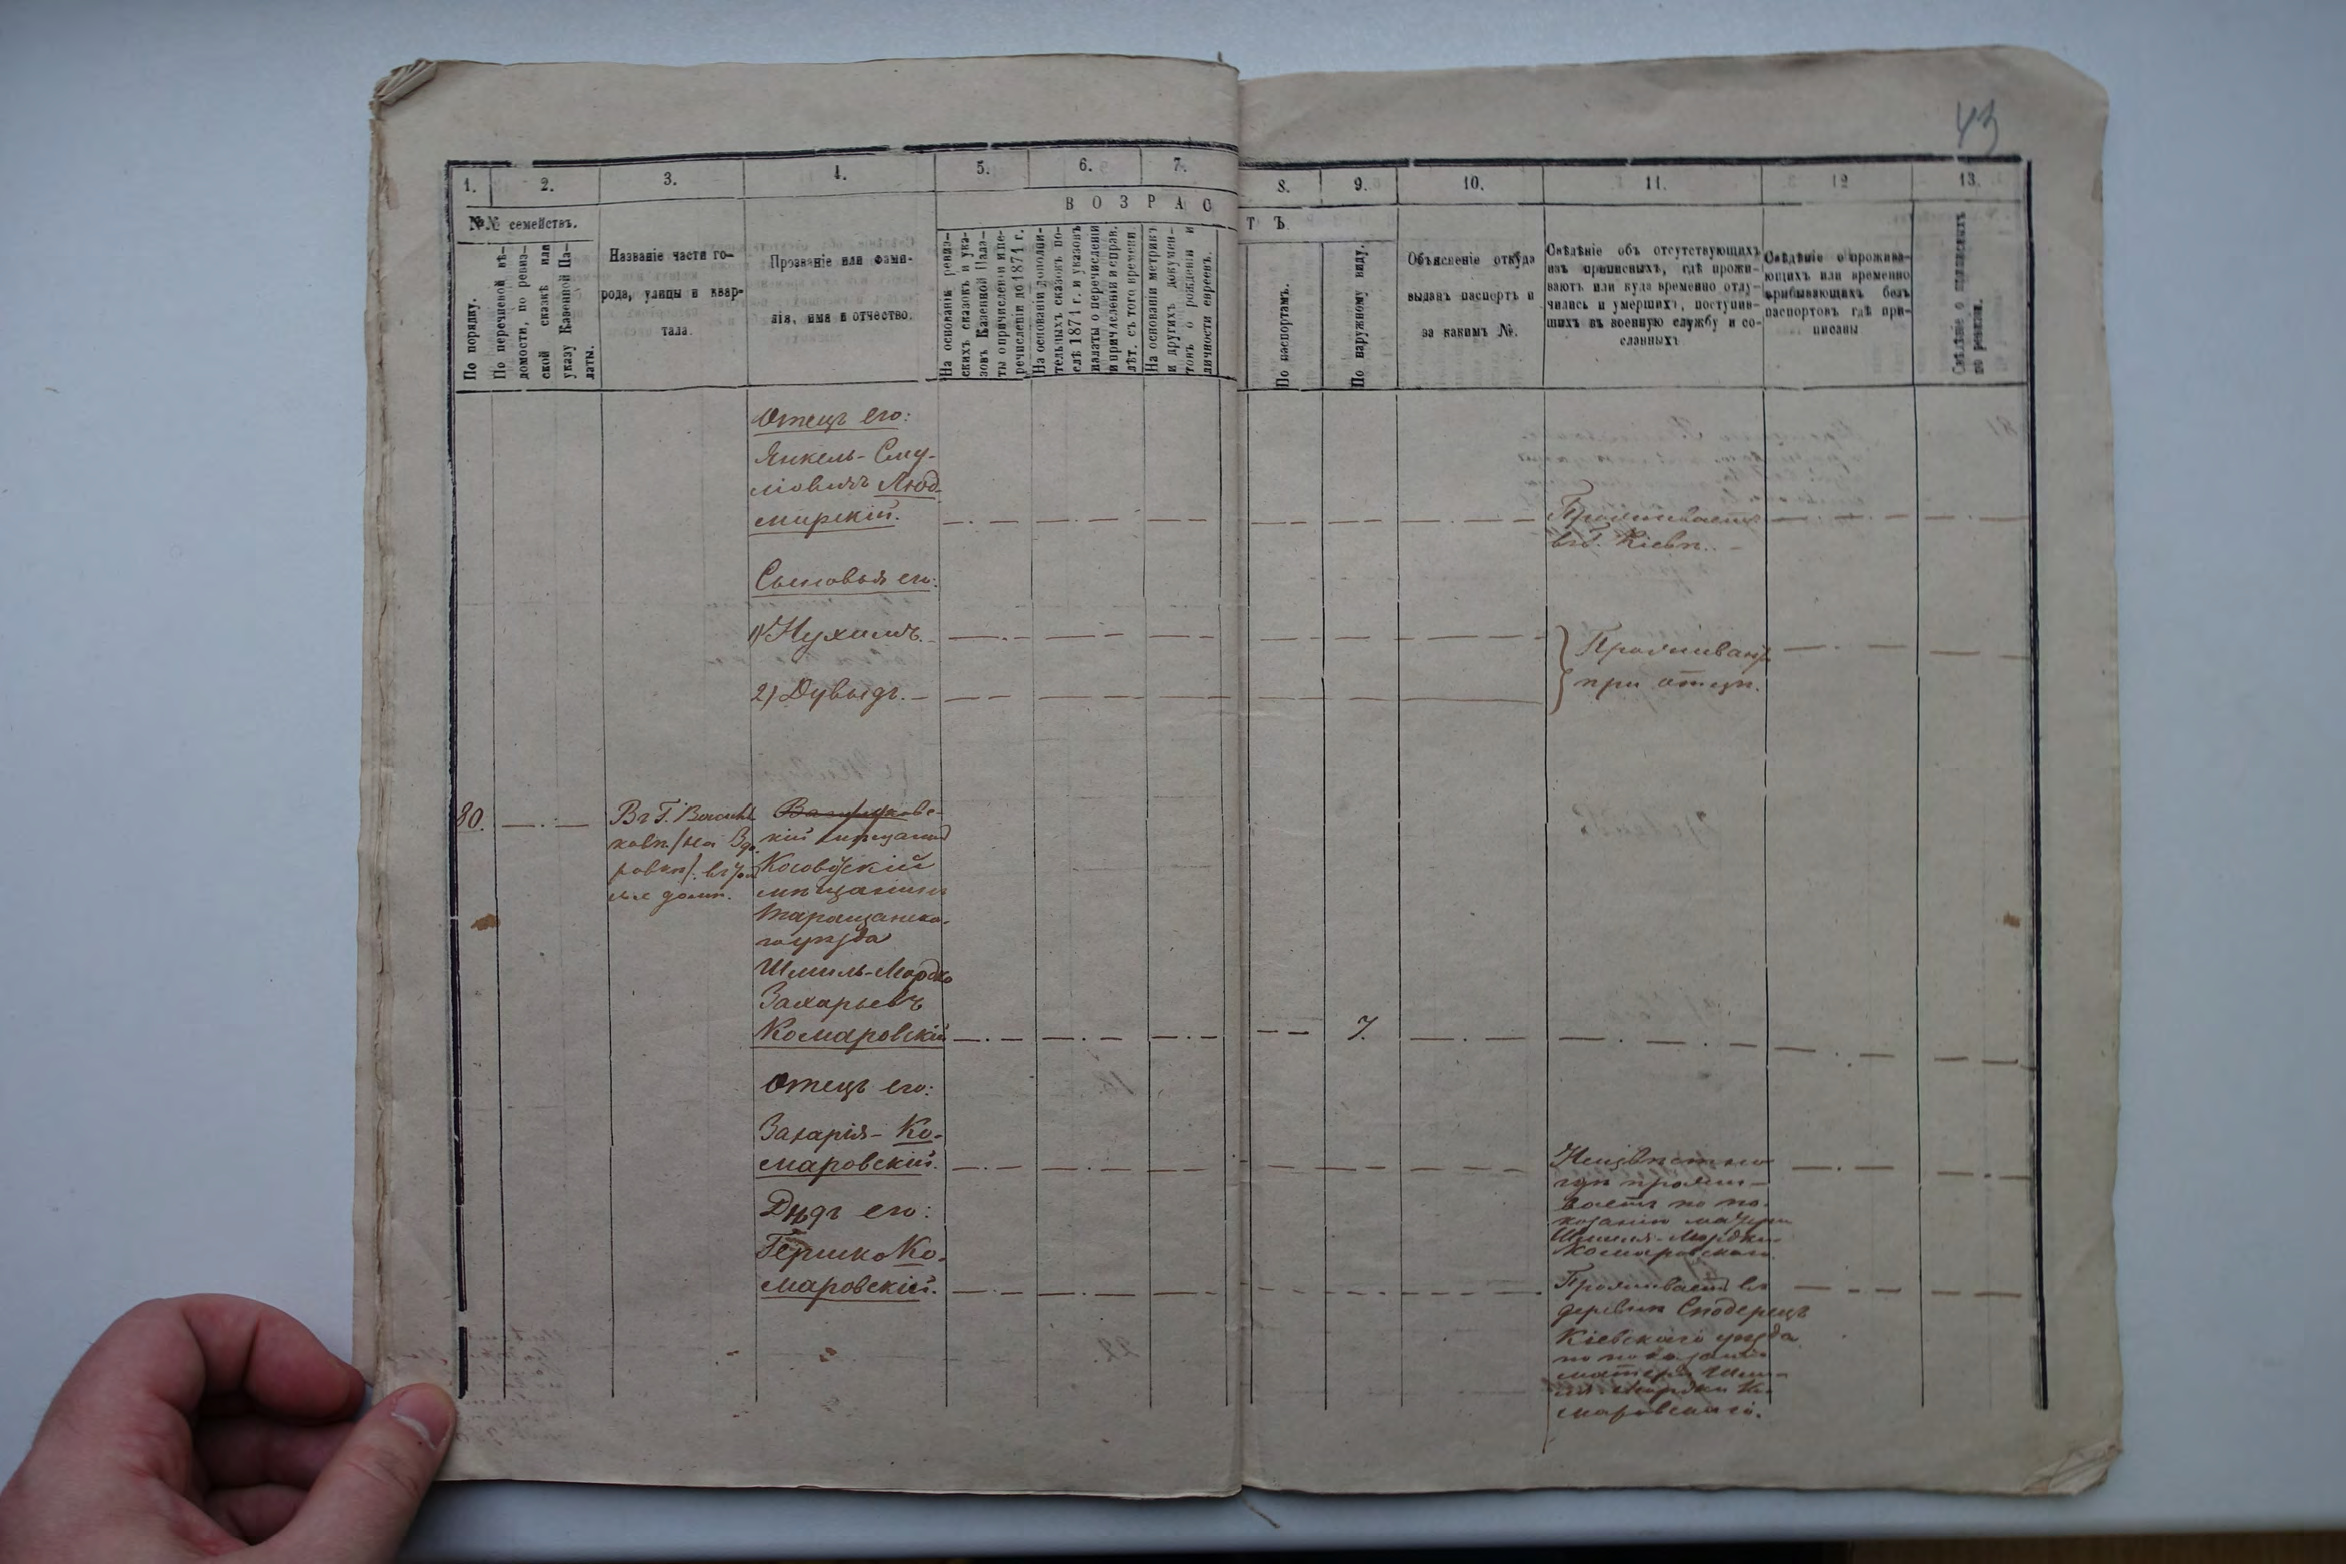 43
1.
2.
3.
4.
5.
6.
7.
8.
9.
10.
11.
12
13.
№№ семействъ.
По порядку.
По перечневой вѣ-
домости, по ревиз-
ской сказкѣ или
указу Казенной Па-
латы.
Названіе части го-
рода, улицы и квар-
тала.
Прозваніе или фами-
лія, имя и отчество.
ВОЗРАС
ТЪ
На основаніи ревиз-
скихъ сказокъ и ука-
зовъ Казенной Пала-
ты о причисленіи и пе-
речисленіи до 1871 г.
На основаніи дополни-
тельныхъ сказокъ по-
слѣ 1871 г. и указовъ
палаты о перечисленіи
и причисленіи и справ.
лѣт. съ того времени.
На основаніи метрикъ
и другихъ докумен-
товъ о рожденіи и
личности евреевъ.
По паспортамъ.
По наружному виду.
Объясненіе откуда
выданъ паспортъ и
за какимъ №.
Свѣдѣніе объ отсутствующихъ
изъ приписныхъ, гдѣ прожи-
ваютъ или куда временно отлу-
чились и умершихъ, поступив-
шихъ въ военную службу и со-
сланныхъ
Свѣдѣніе о прожива-
ющихъ или временно
прибывающихъ безъ
паспортовъ гдѣ при-
писаны
Свѣдѣніе о
по ревизіи.
Отецъ его:
Янкель-Сму-
ліовичъ Люд-
мирскій.
Проживаетъ
въ г. Кіевѣ.
Сыновья его:
1) Нухимъ.
2) Дувыдъ.
Проживаютъ
при отцѣ.
80.
Въ г. Василь
ковѣ /на
въ
домѣ.
кій мѣщанинъ
мѣщанинъ
Таращанска-
го уѣзда
Шмиль-Мордко
Захарьевъ
Комаровскій
7.
Отецъ его:
Захарія- Ко-
маровскій.
Неизвѣстно
гдѣ прожи-
ваетъ по по-
казанію матери
Шмиля-Мордки
Комаровскаго.
Дѣдъ его:
Гершко Ко-
маровскій.
Проживаетъ въ
деревнѣ
Кіевскаго уѣзда
по показанію
матери Шми-
ля-Мордки Ко-
маровскаго.